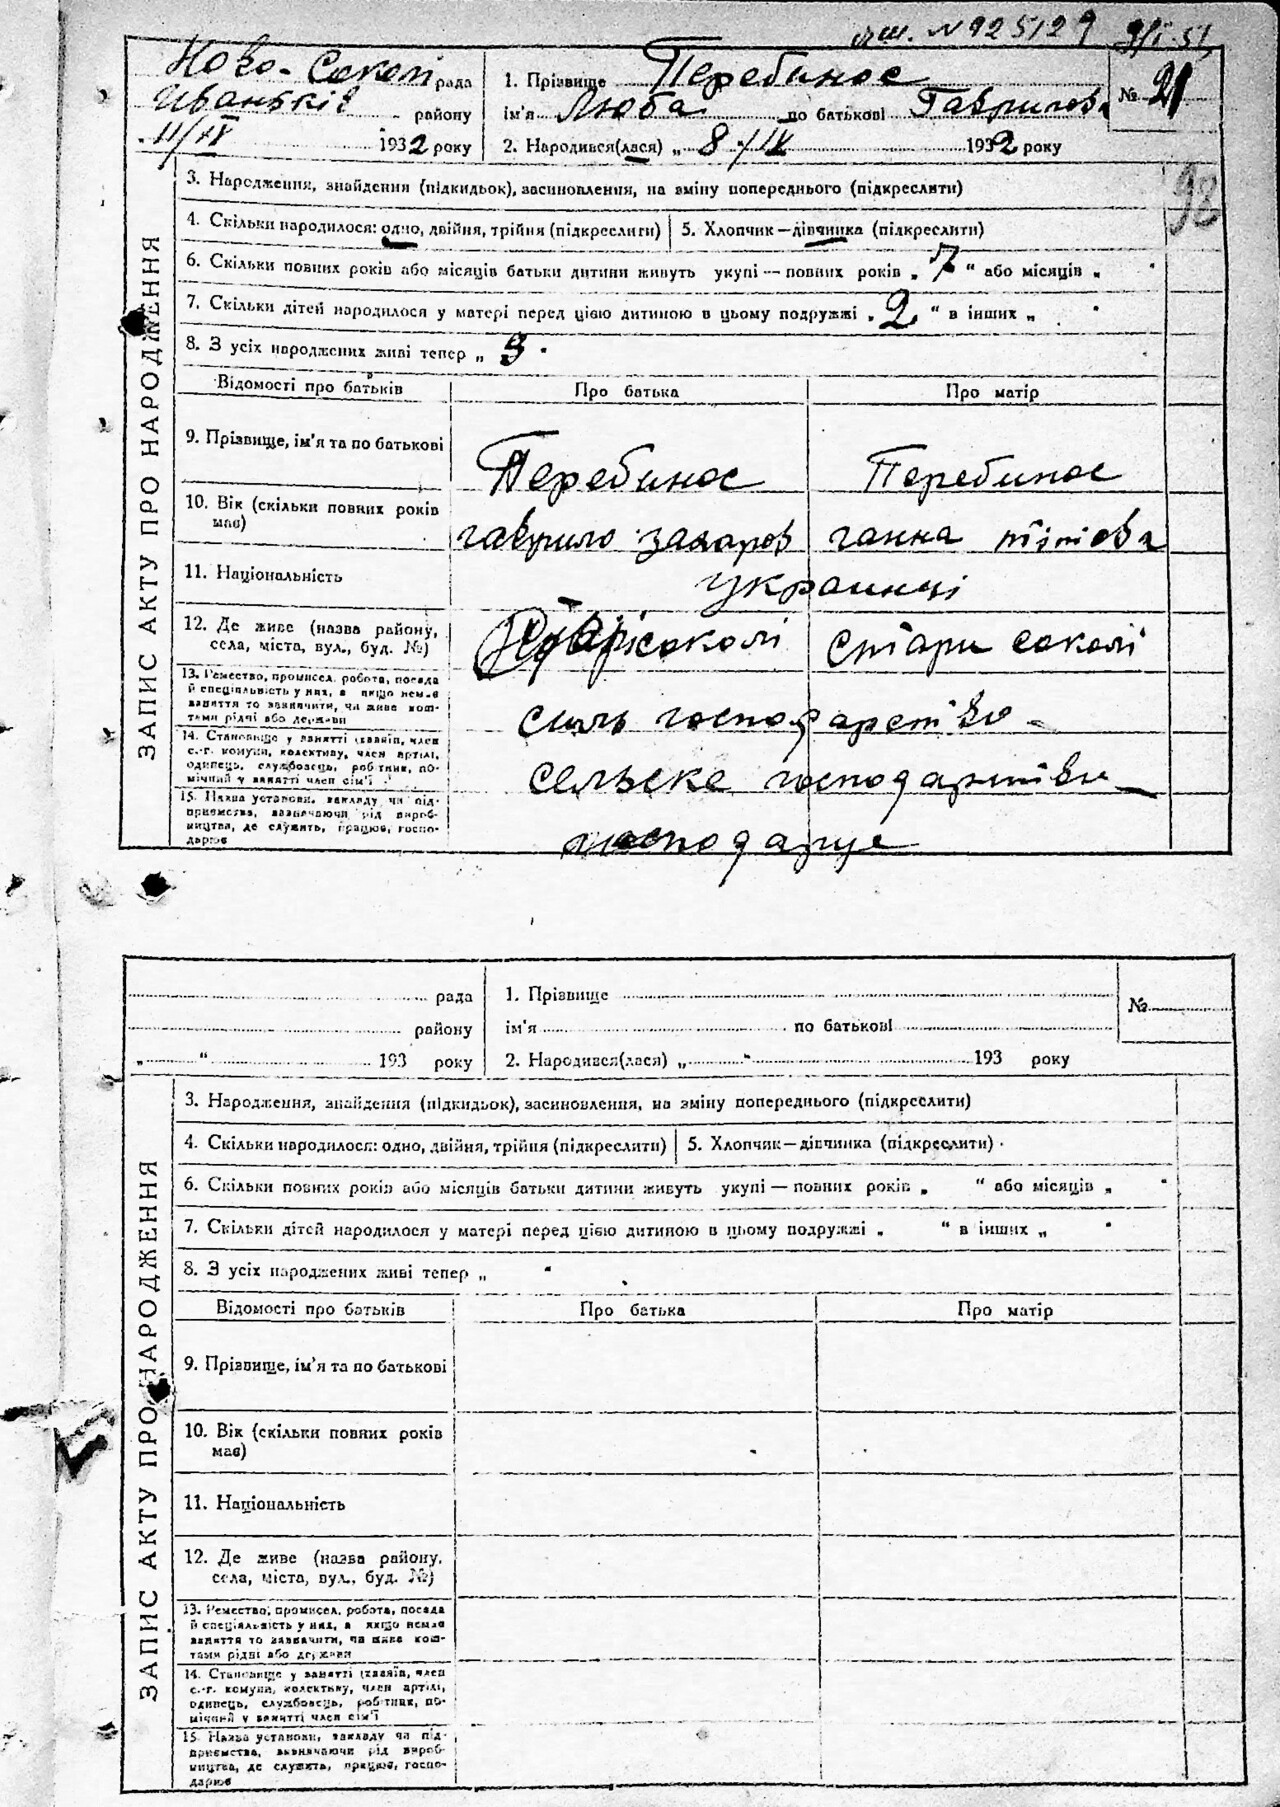 N 925129 9/I-51
Ново-Соколі рада 1. Прізвище Перебинос № 21
Иваньків району ім'я Люба по батькові Гаврилова
11/IX 1932 року 2. Народився(лася) „ 8 " IX 1932 року
98
ЗАПИС АКТУ ПРО НАРОДЖЕННЯ
3. Народження, знайдення (підкидьок), засиновлення, на зміну попереднього (підкреслити)
4. Скільки народилося: одно, двійня, трійня (підкреслити) 5. Хлопчик—дівчинка (підкреслити)
6. Скільки повних років або місяців батьки дитини живуть укупі — повних років „ 7 " або місяців „ "
7. Скільки дітей народилося у матері перед цією дитиною в цьому подружжі „ 2 " в інших „ "
8. З усіх народжених живі тепер „ 3 "
Відомості про батьків Про батька Про матір
9. Прізвище, ім'я та по батькові Перебинос Перебинос
10. Вік (скільки повних років
має) гаврило захаров ганна тітова
11. Національність украинці
12. Де живе (назва району,
села, міста, вул., буд. №) соколі Стари соколі
13. Ремество, промисел, робота, посада
й спеціальність у них, а якщо немає
заняття то зазначити, чи живе кош-
тами рідні або держави
силь господарство
14. Становище у занятті (хазяїн, член
с.-г. комуни, колективу, член артілі,
одинець, службовець, робітник, по-
мічний у занятті член сім'ї
сельске господартво
15. Назва установи, закладу чи під-
приємства, зазначаючи рід вироб-
ництва, де служить, працює, госпо-
дарює
господарце
рада 1. Прізвище №
району ім'я по батькові
„ " 193 року 2. Народився(лася) „ " 193 року
ЗАПИС АКТУ ПРО НАРОДЖЕННЯ
3. Народження, знайдення (підкидьок), засиновлення, на зміну попереднього (підкреслити)
4. Скільки народилося: одно, двійня, трійня (підкреслити) 5. Хлопчик—дівчинка (підкреслити)
6. Скільки повних років або місяців батьки дитини живуть укупі — повних років „ " або місяців „ "
7. Скільки дітей народилося у матері перед цією дитиною в цьому подружжі „ " в інших „ "
8. З усіх народжених живі тепер „ "
Відомості про батьків Про батька Про матір
9. Прізвище, ім'я та по батькові
10. Вік (скільки повних років
має)
11. Національність
12. Де живе (назва району,
села, міста, вул., буд. №)
13. Ремество, промисел, робота, посада
й спеціальність у них, а якщо немає
заняття то зазначити, чи живе кош-
тами рідні або держави
14. Становище у занятті (хазяїн, член
с.-г. комуни, колективу, член артілі,
одинець, службовець, робітник, по-
мічний у занятті член сім'ї
15. Назва установи, закладу чи під-
приємства, зазначаючи рід вироб-
ництва, де служить, працює, госпо-
дарює